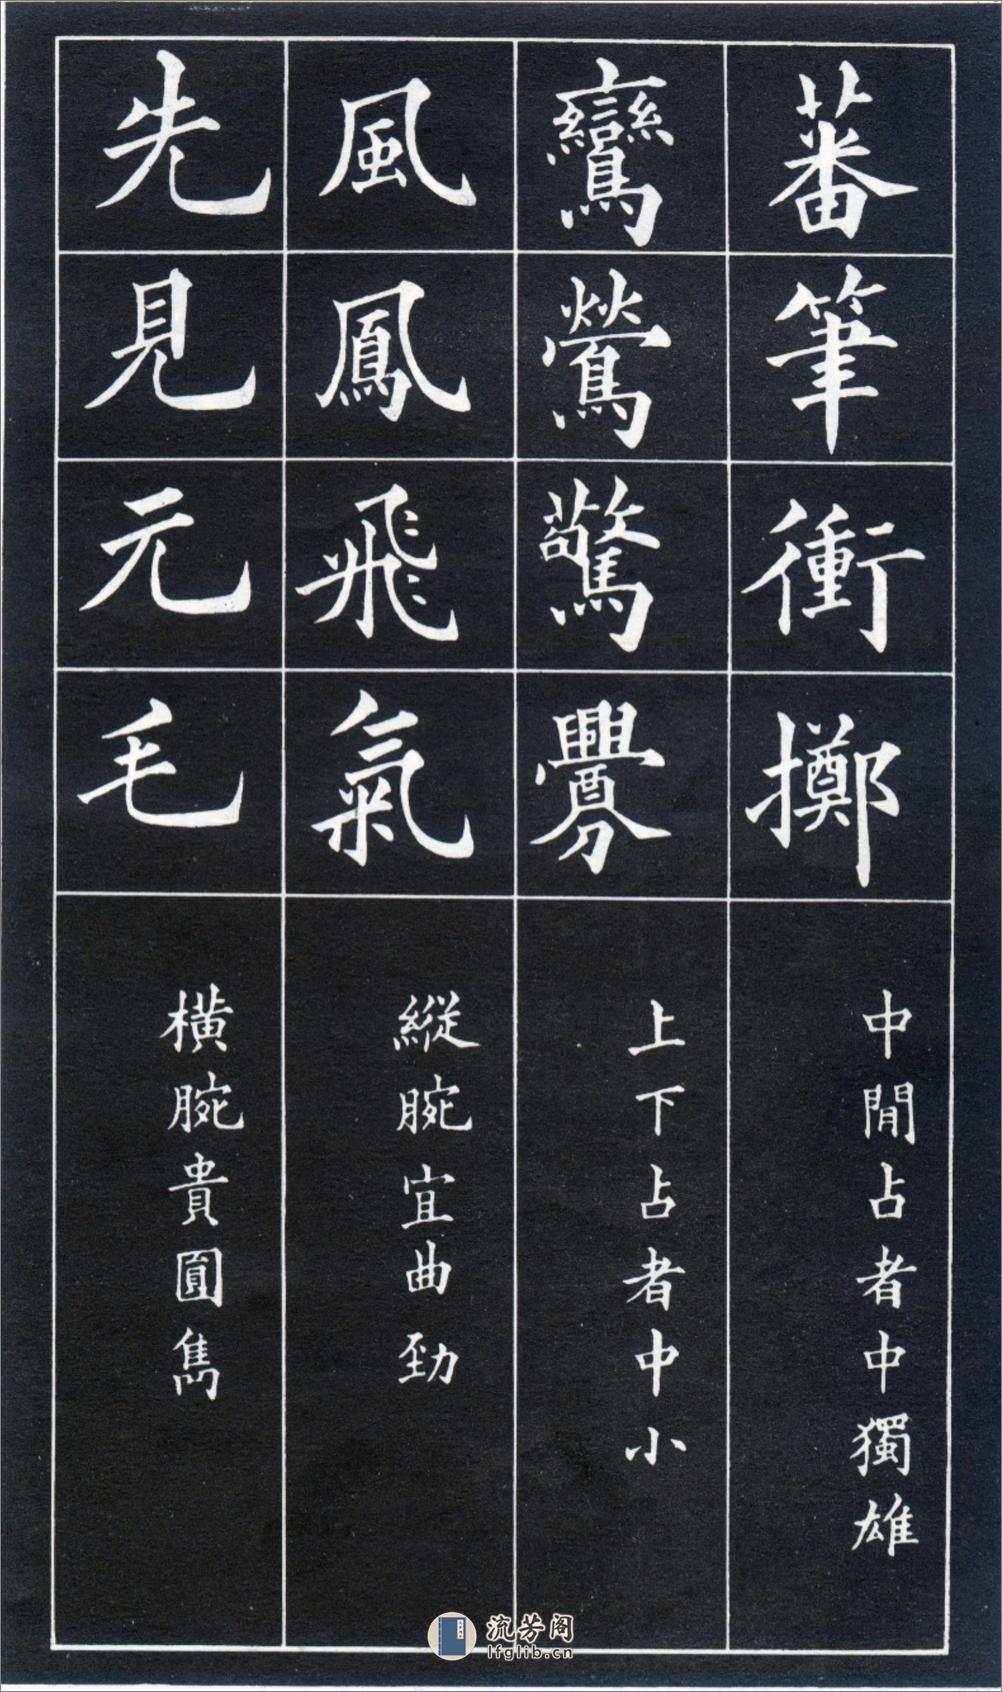 蕃筆衝擲
中間占者中獨雄
鸞鶯驚釁
上下占者中小
風鳳飛氣
縱腕宜曲勁
先見元毛
橫腕貴圓雋
流芳阁
lfglib.cn